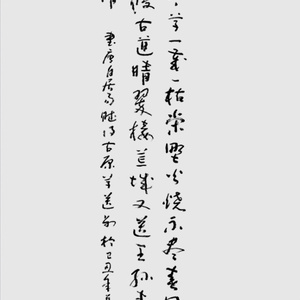 草一歲一枯榮野火燒不盡春
侵古道晴翠接荒城又送王孫去
書唐白居易賦得古原草送別於己丑年